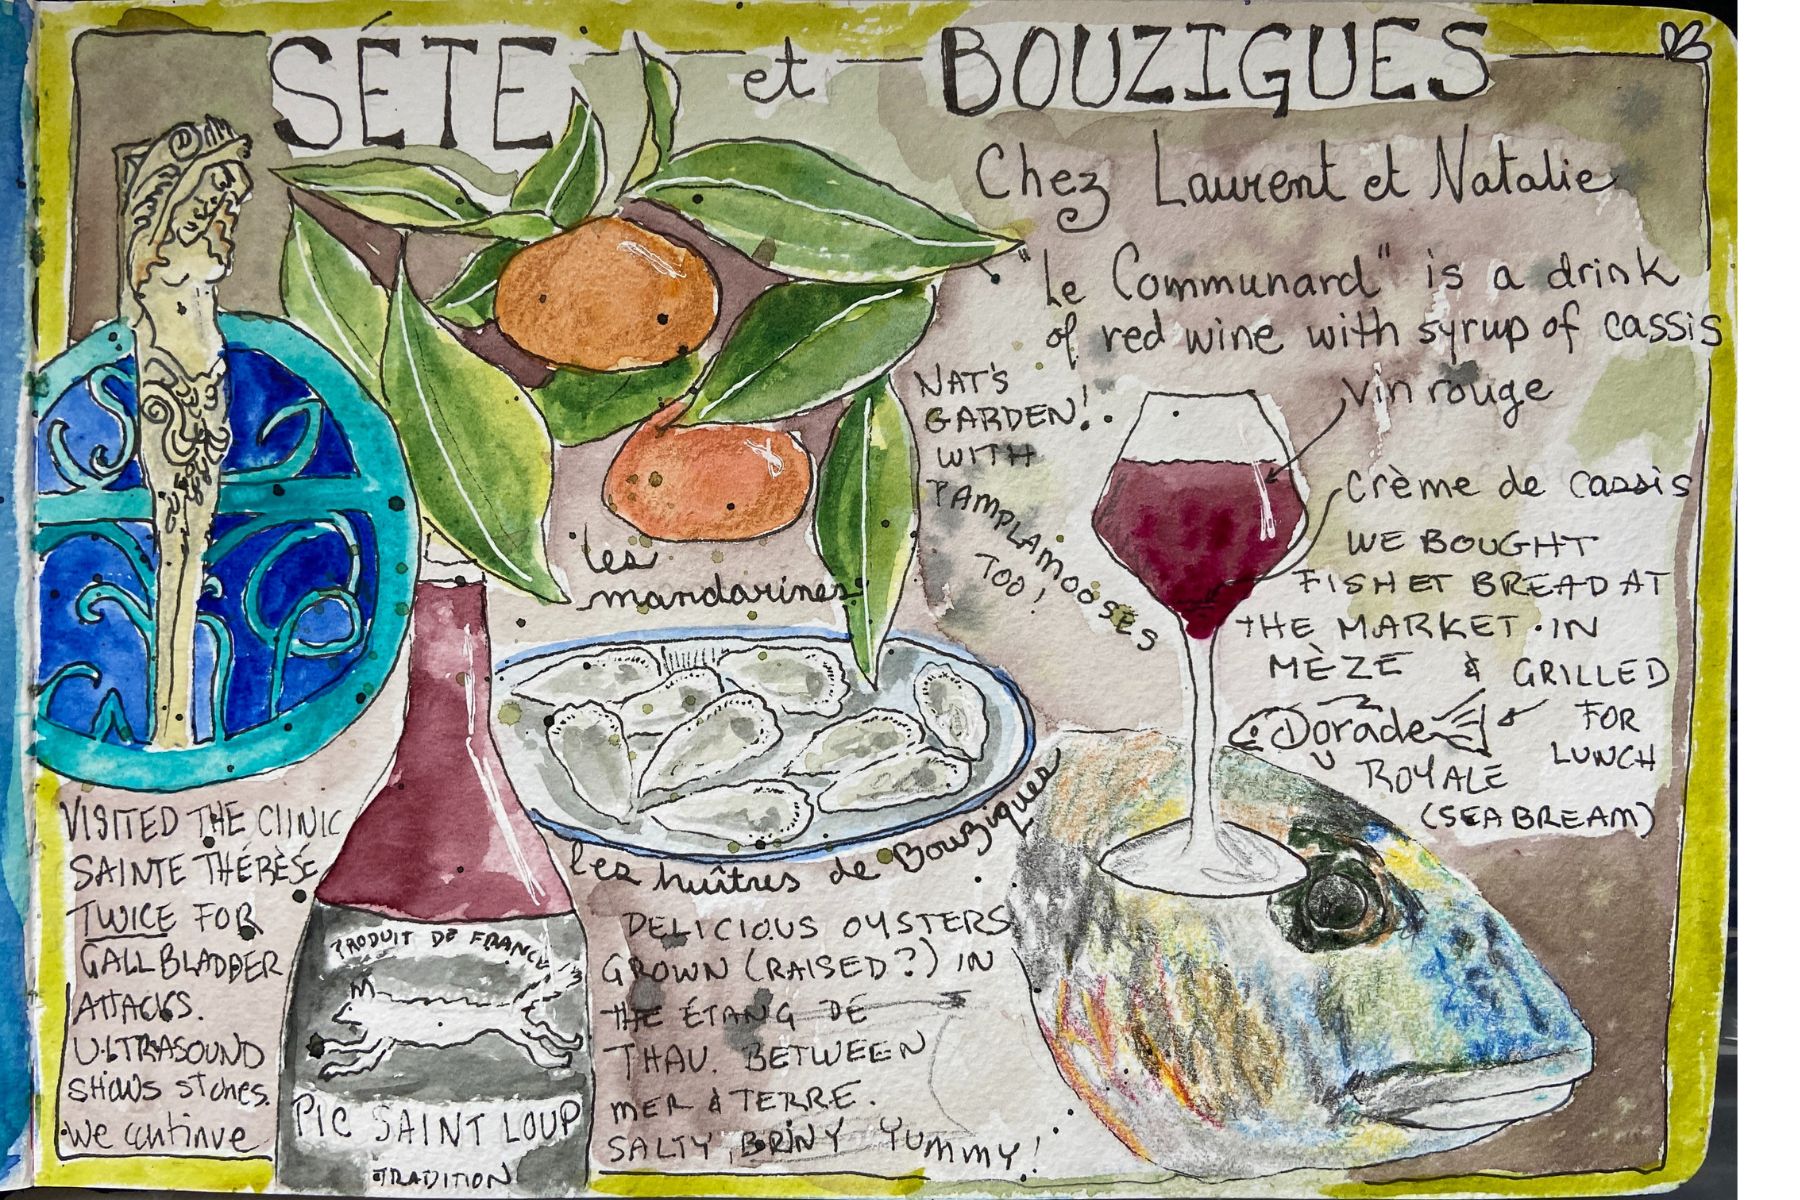 SÉTE et BOUZIGUES
Chez Laurent et Natalie
"Le Communard" is a drink
of red wine with syrup of cassis
vin rouge
Crème de cassis
NAT'S
GARDEN!
WITH
PAMPLAMOOSES
TOO!
les
mandarines
WE BOUGHT
FISH ET BREAD AT
THE MARKET IN
MÈZE & GRILLED
FOR
LUNCH
Dorade
ROYALE
(SEA BREAM)
les huîtres de Bouzigues
DELICIOUS OYSTERS
GROWN (RAISED?) IN
THE ÉTANG DE
THAU. BETWEEN
MER & TERRE.
SALTY, BRINY YUMMY!
VISITED THE CLINIC
SAINTE THÉRÈSE
TWICE FOR
GALL BLADDER
ATTACKS.
ULTRASOUND
SHOWS STONES.
We continue
PRODUIT DE FRANCE
PIC SAINT LOUP
TRADITION